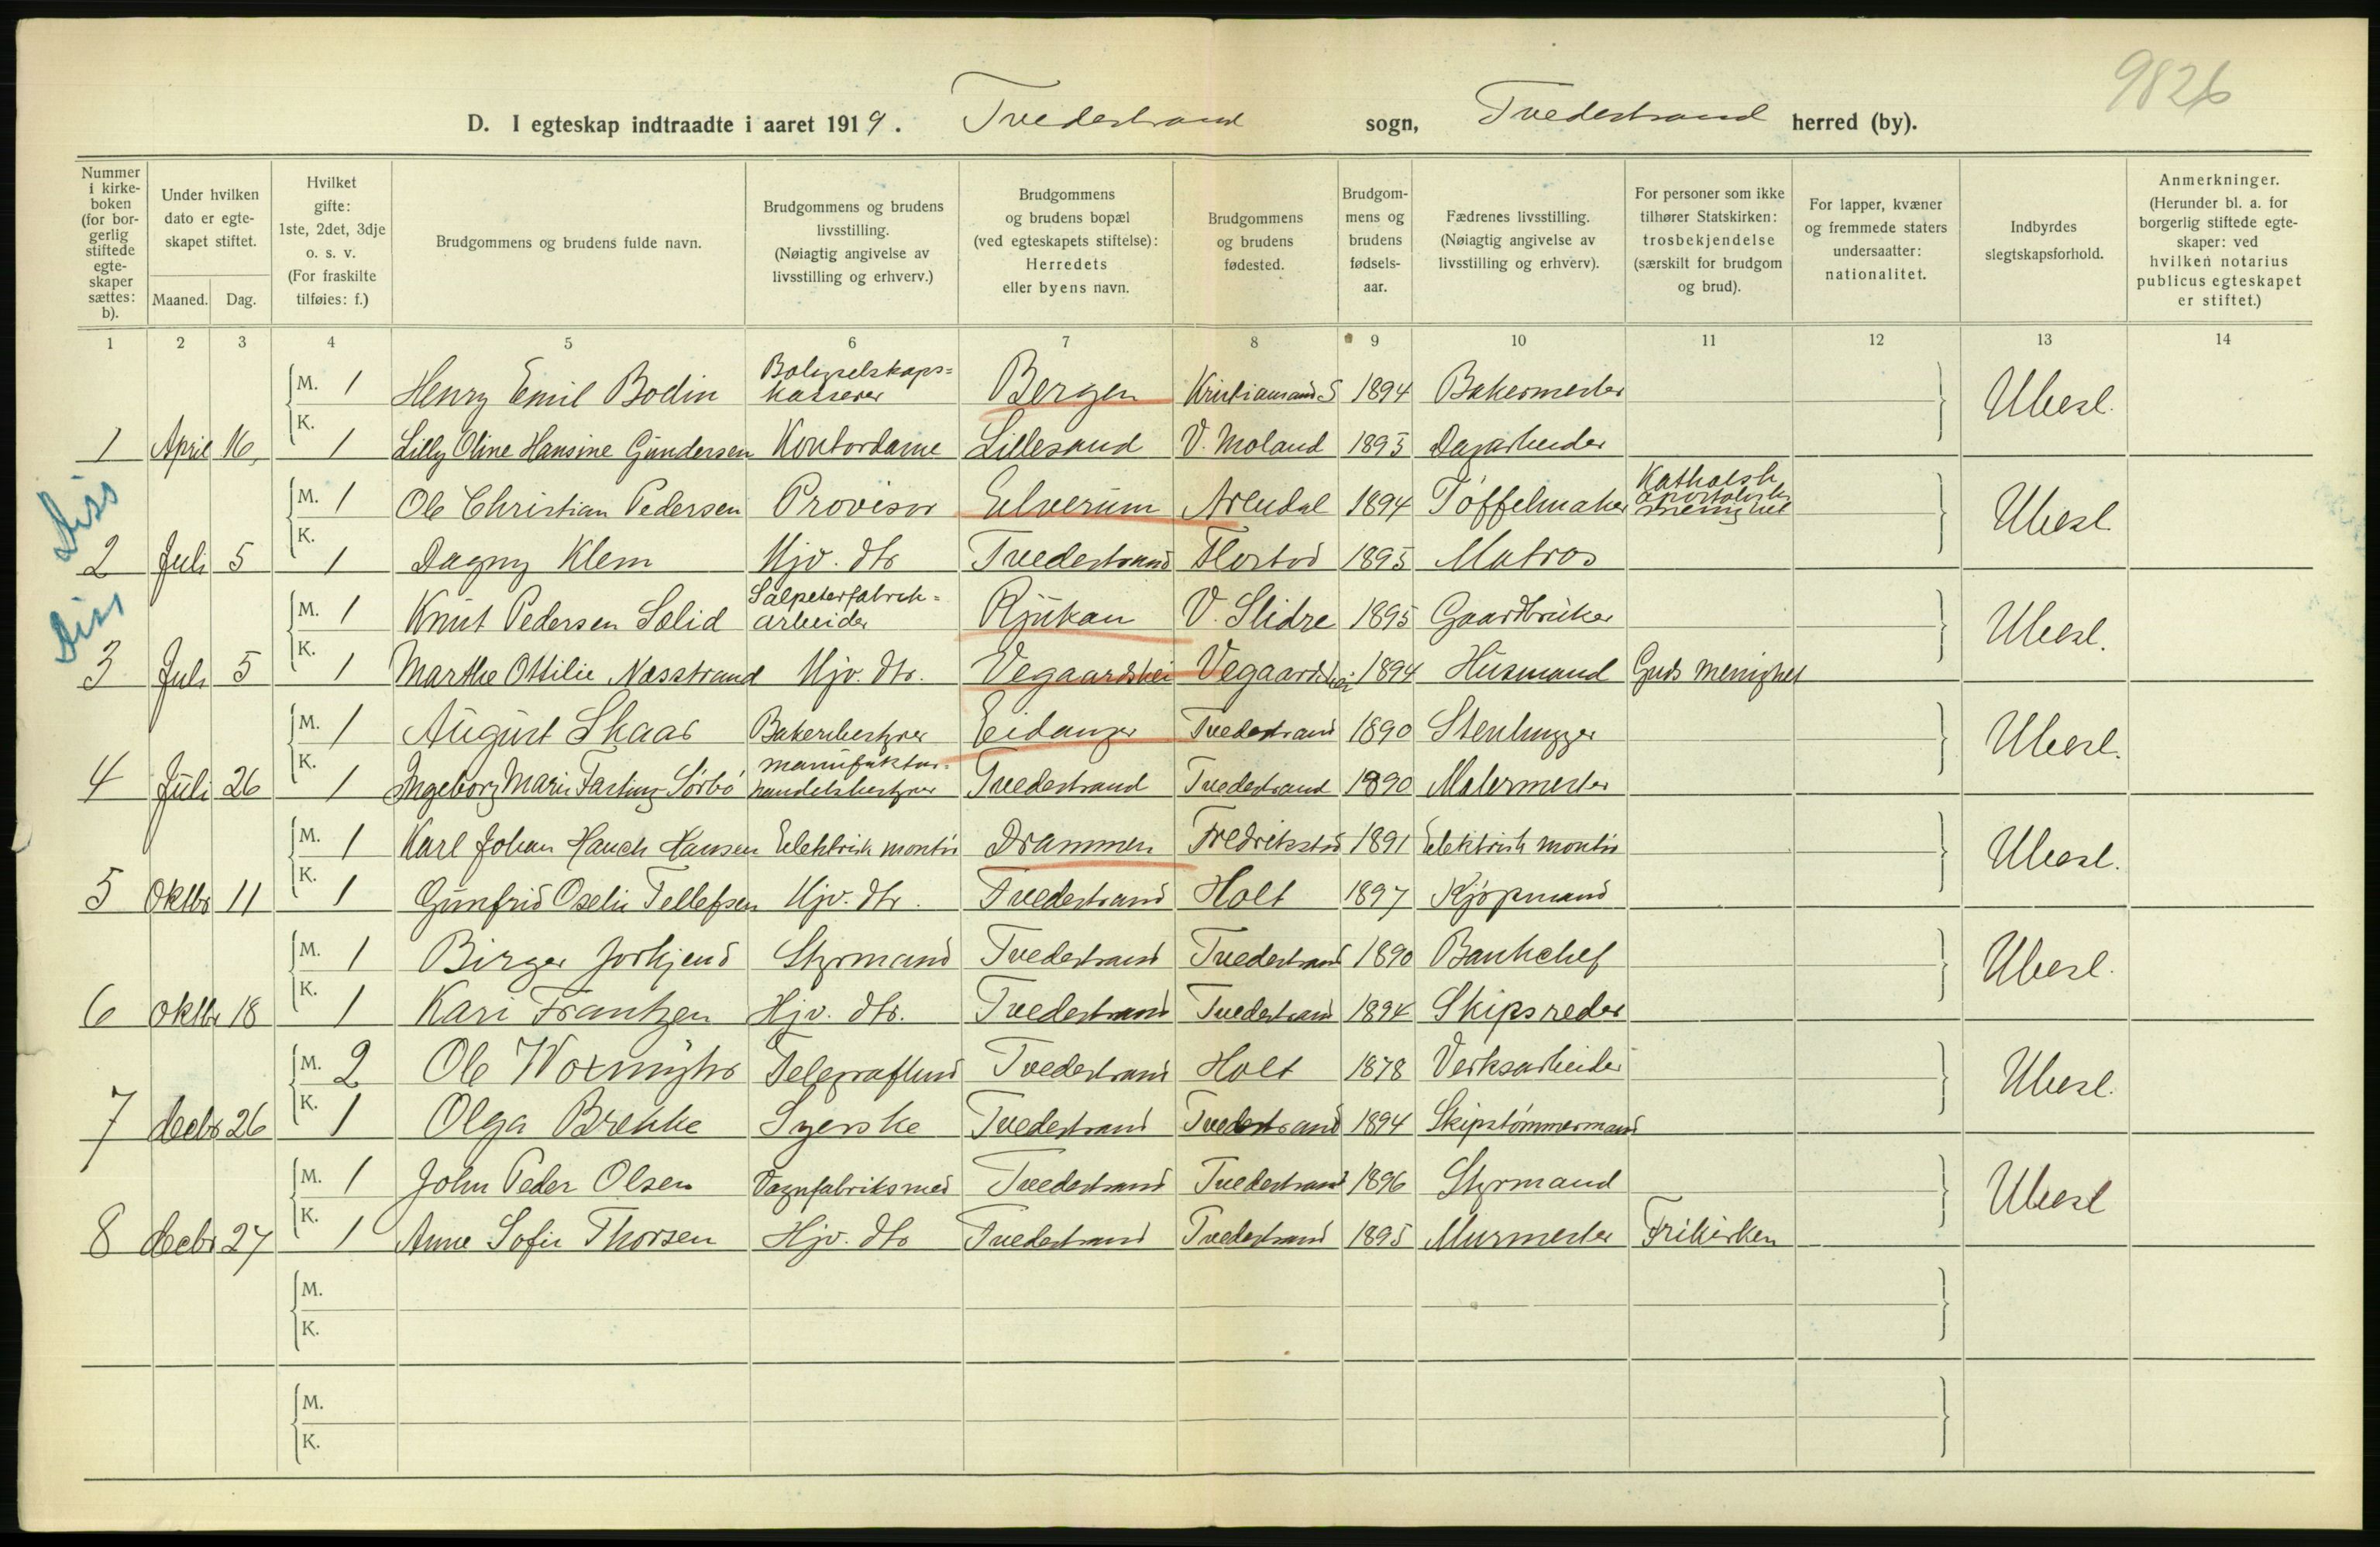 9826
D. I egteskap indtraadte i aaret 1919. Tvedestrand sogn, Tvedestrand herred (by).
Nummer i kirke-boken (for bor-gerlig stiftede egte-skaper sættes: b).
Under hvilken dato er egte-skapet stiftet.
Maaned. Dag.
Hvilket gifte: 1ste, 2det, 3dje o. s. v. (For fraskilte tilføies: f.)
Brudgommens og brudens fulde navn.
Brudgommens og brudens livsstilling. (Nøiagtig angivelse av livsstilling og erhverv.)
Brudgommens og brudens bopæl (ved egteskapets stiftelse): Herredets eller byens navn.
Brudgommens og brudens fødested.
Brudgom-mens og brudens fødsels-aar.
Fædrenes livsstilling. (Nøiagtig angivelse av livsstilling og erhverv).
For personer som ikke tilhører Statskirken: trosbekjendelse (særskilt for brudgom og brud).
For lapper, kvæner og fremmede staters undersaatter: nationalitet.
Indbyrdes slegtskapsforhold.
Anmerkninger. (Herunder bl. a. for borgerlig stiftede egte-skaper: ved hvilken notarius publicus egteskapet er stiftet.)
1 2 3 4 5 6 7 8 9 10 11 12 13 14
M. 1 Henry Emil Bodin kasserer Bergen Kristiansand S 1894 Bakermester Ubesl.
1 April 16, K. 1 Lilly Oline Hansine Gundersen Kontordame Lillesand V. Moland 1895 Dagarbeider
Diss
M. 1 Ole Christian Pedersen Provisor Elverum Arendal 1894 Tøffelmaker Katholsk apostoliske menighet Ubesl.
2 Juli 5 K. 1 Dagny Klem Hjv. dtr Tvedestrand Flostad 1895 Matros
Diss
M. 1 Knut Pedersen Sælid Salpeterfabrik-arbeider Rjukan V. Slidre 1895 Gaardbruker Ubesl.
3 Juli 5 K. 1 Marthe Ottilie Næsstrand Hjv. dtr. Vegaardshei Vegaardshei 1894 Husmand Guds menighet
M. 1 August Skaar Bakerbestyrer Eidanger Tvedestrand 1890 Stenhugger Ubesl.
4 Juli 26 K. 1 Ingeborg Marie Fasting Sørbø manufaktur-handelsbestyrer Tvedestrand Tvedestrand 1890 Malermester
M. 1 Karl Johan Hauch Hansen Elektrisk montør Drammen Fredrikstad 1891 Elektrisk montør Ubesl.
5 Oktbr 11 K. 1 Gunfrid Oselie Tellefsen Hjv. dtr. Tvedestrand Holt 1897 Kjøpmand
M. 1 Birger Jorkjend Styrmand Tvedestrand Tvedestrand 1890 Bankchef Ubesl.
6 Oktbr 18 K. 1 Kari Frantzen Hjv. dtr. Tvedestrand Tvedestrand 1894 Skipsreder
M. 2 Ole Woxmyhr Tvedestrand Holt 1878 Verksarbeider Ubesl.
7 decbr 26 K. 1 Olga Brekke Syerske Tvedestrand Tvedestrand 1894 Skipstømmermand
M. 1 John Peder Olsen Vognfabriksmed Tvedestrand Tvedestrand 1896 Styrmand Ubesl
8 decbr 27 K. 1 Anne Sofie Thorsen Hjv. dtr Tvedestrand Tvedestrand 1895 Murmester Frikirken
M.
K.
M.
K.